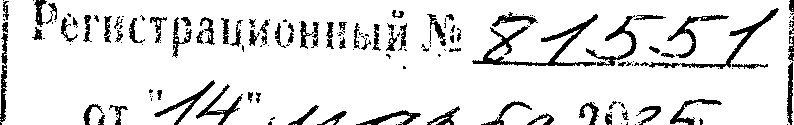 Регистрационный № 81551
от "14" марта 2025